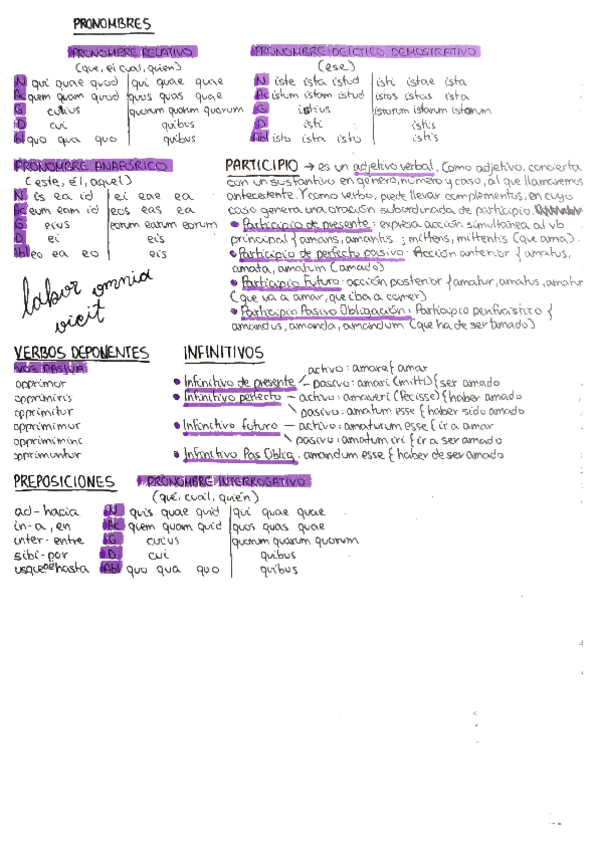 PRONOMBRES
PRONOMBRE RELATIVO
(que, el cual, quien)
N qui quae quod qui quae quae
Ac quem quam quod quos quas quae
G cuius quorum quarum quorum
D cui quibus
Abl quo qua quo quibus
PRONOMBRE DEÍCTICO DEMOSTRATIVO
(ese)
N iste ista istud isti istae ista
Ac istum istam istud istos istas ista
G istius istorum istarum istorum
D isti istis
Abl isto ista isto istis
PRONOMBRE ANAFÓRICO
(este, él, aquel)
N is ea id ei eae ea
Ac eum eam id eos eas ea
G eius eorum earum eorum
D ei eis
Abl eo ea eo eis
labor omnia
vicit
PARTICIPIO → es un adjetivo verbal. Como adjetivo, concierta
con un sustantivo en género, número y caso, al que llamaremos
antecedente. Y como verbo, puede llevar complementos, en cuyo
caso genera una oración subordinada de participio.
• Participio de presente: expresa acción simultánea al vb
principal { amans, amantis ; mittens, mittentis (que ama).
• Participio de perfecto pasivo: Acción anterior { amatus,
amata, amatum (amado)
• Participio Futuro: acción posterior { amatur, amatus, amatur
(que va a amar, que iba a comer)
• Participio Pasivo Obligación: Participio perifrástico {
amandus, amanda, amandum (que ha de ser amado)
VERBOS DEPONENTES
VOZ PASIVA
opprimor
opprimiris
opprimitur
opprimimur
opprimimini
opprimuntur
INFINITIVOS
• Infinitivo de presente activo: amare { amar
pasivo: amari (mitti) { ser amado
• Infinitivo perfecto activo: amaveri (fecisse) { haber amado
pasivo: amatum esse { haber sido amado
• Infinitivo futuro activo: amaturum esse { ir a amar
pasivo: amatum iri { ir a ser amado
• Infinitivo Pas Obliq. amandum esse { haber de ser amado
PREPOSICIONES
ad - hacia
in - a, en
inter - entre
sibi - por
usque hasta
PRONOMBRE INTERROGATIVO
(qué, cuál, quién)
N quis quae quid qui quae quae
Ac quem quam quid quos quas quae
G cuius quorum quarum quorum
D cui quibus
Abl quo qua quo quibus